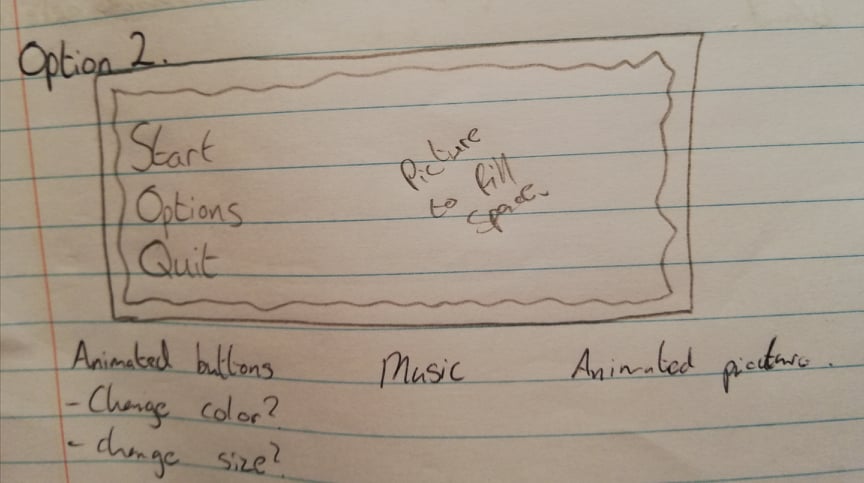 Option 2.
Start
Options
Quit
Picture
to fill
space.
Animated buttons
- Change color?
- change size?
Music
Animated picture.